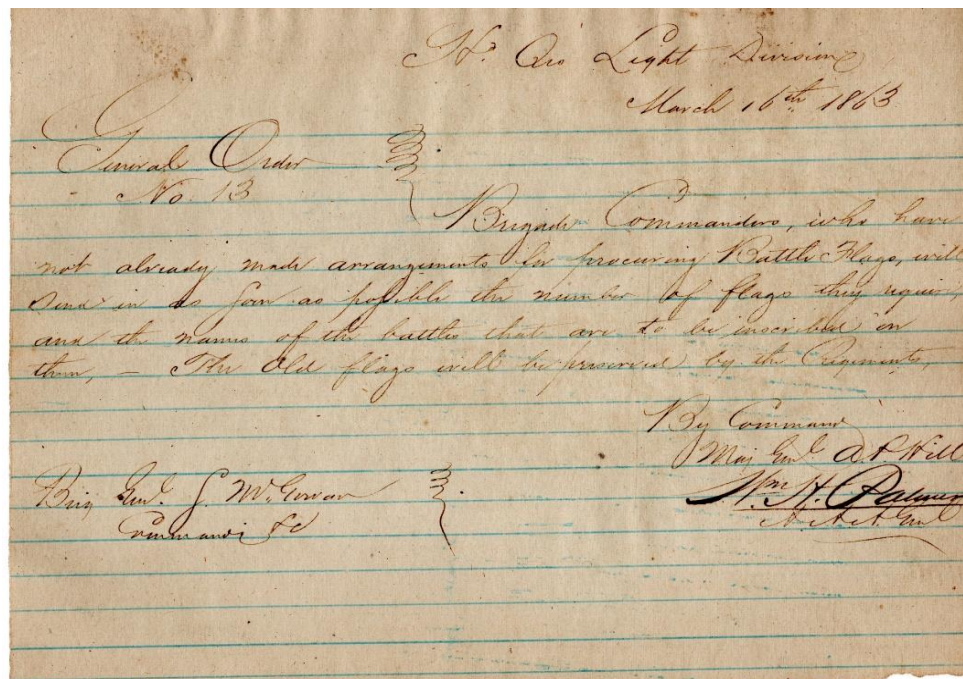 Hd. Qrs Light Division
March 16th 1863
General Order
No. 13
Brigade Commanders, who have
not already made arrangements for procuring Battle Flags, will
send in as soon as possible the number of flags they require,
and the names of the battles that are to be inscribed on
them, — The Old flags will be preserved by the Regiments,
By Command
Maj Genl A. P. Hill
Wm. H. Palmer
A. A. A. Genl
Brig Genl. S. McGowan
Commandg &c